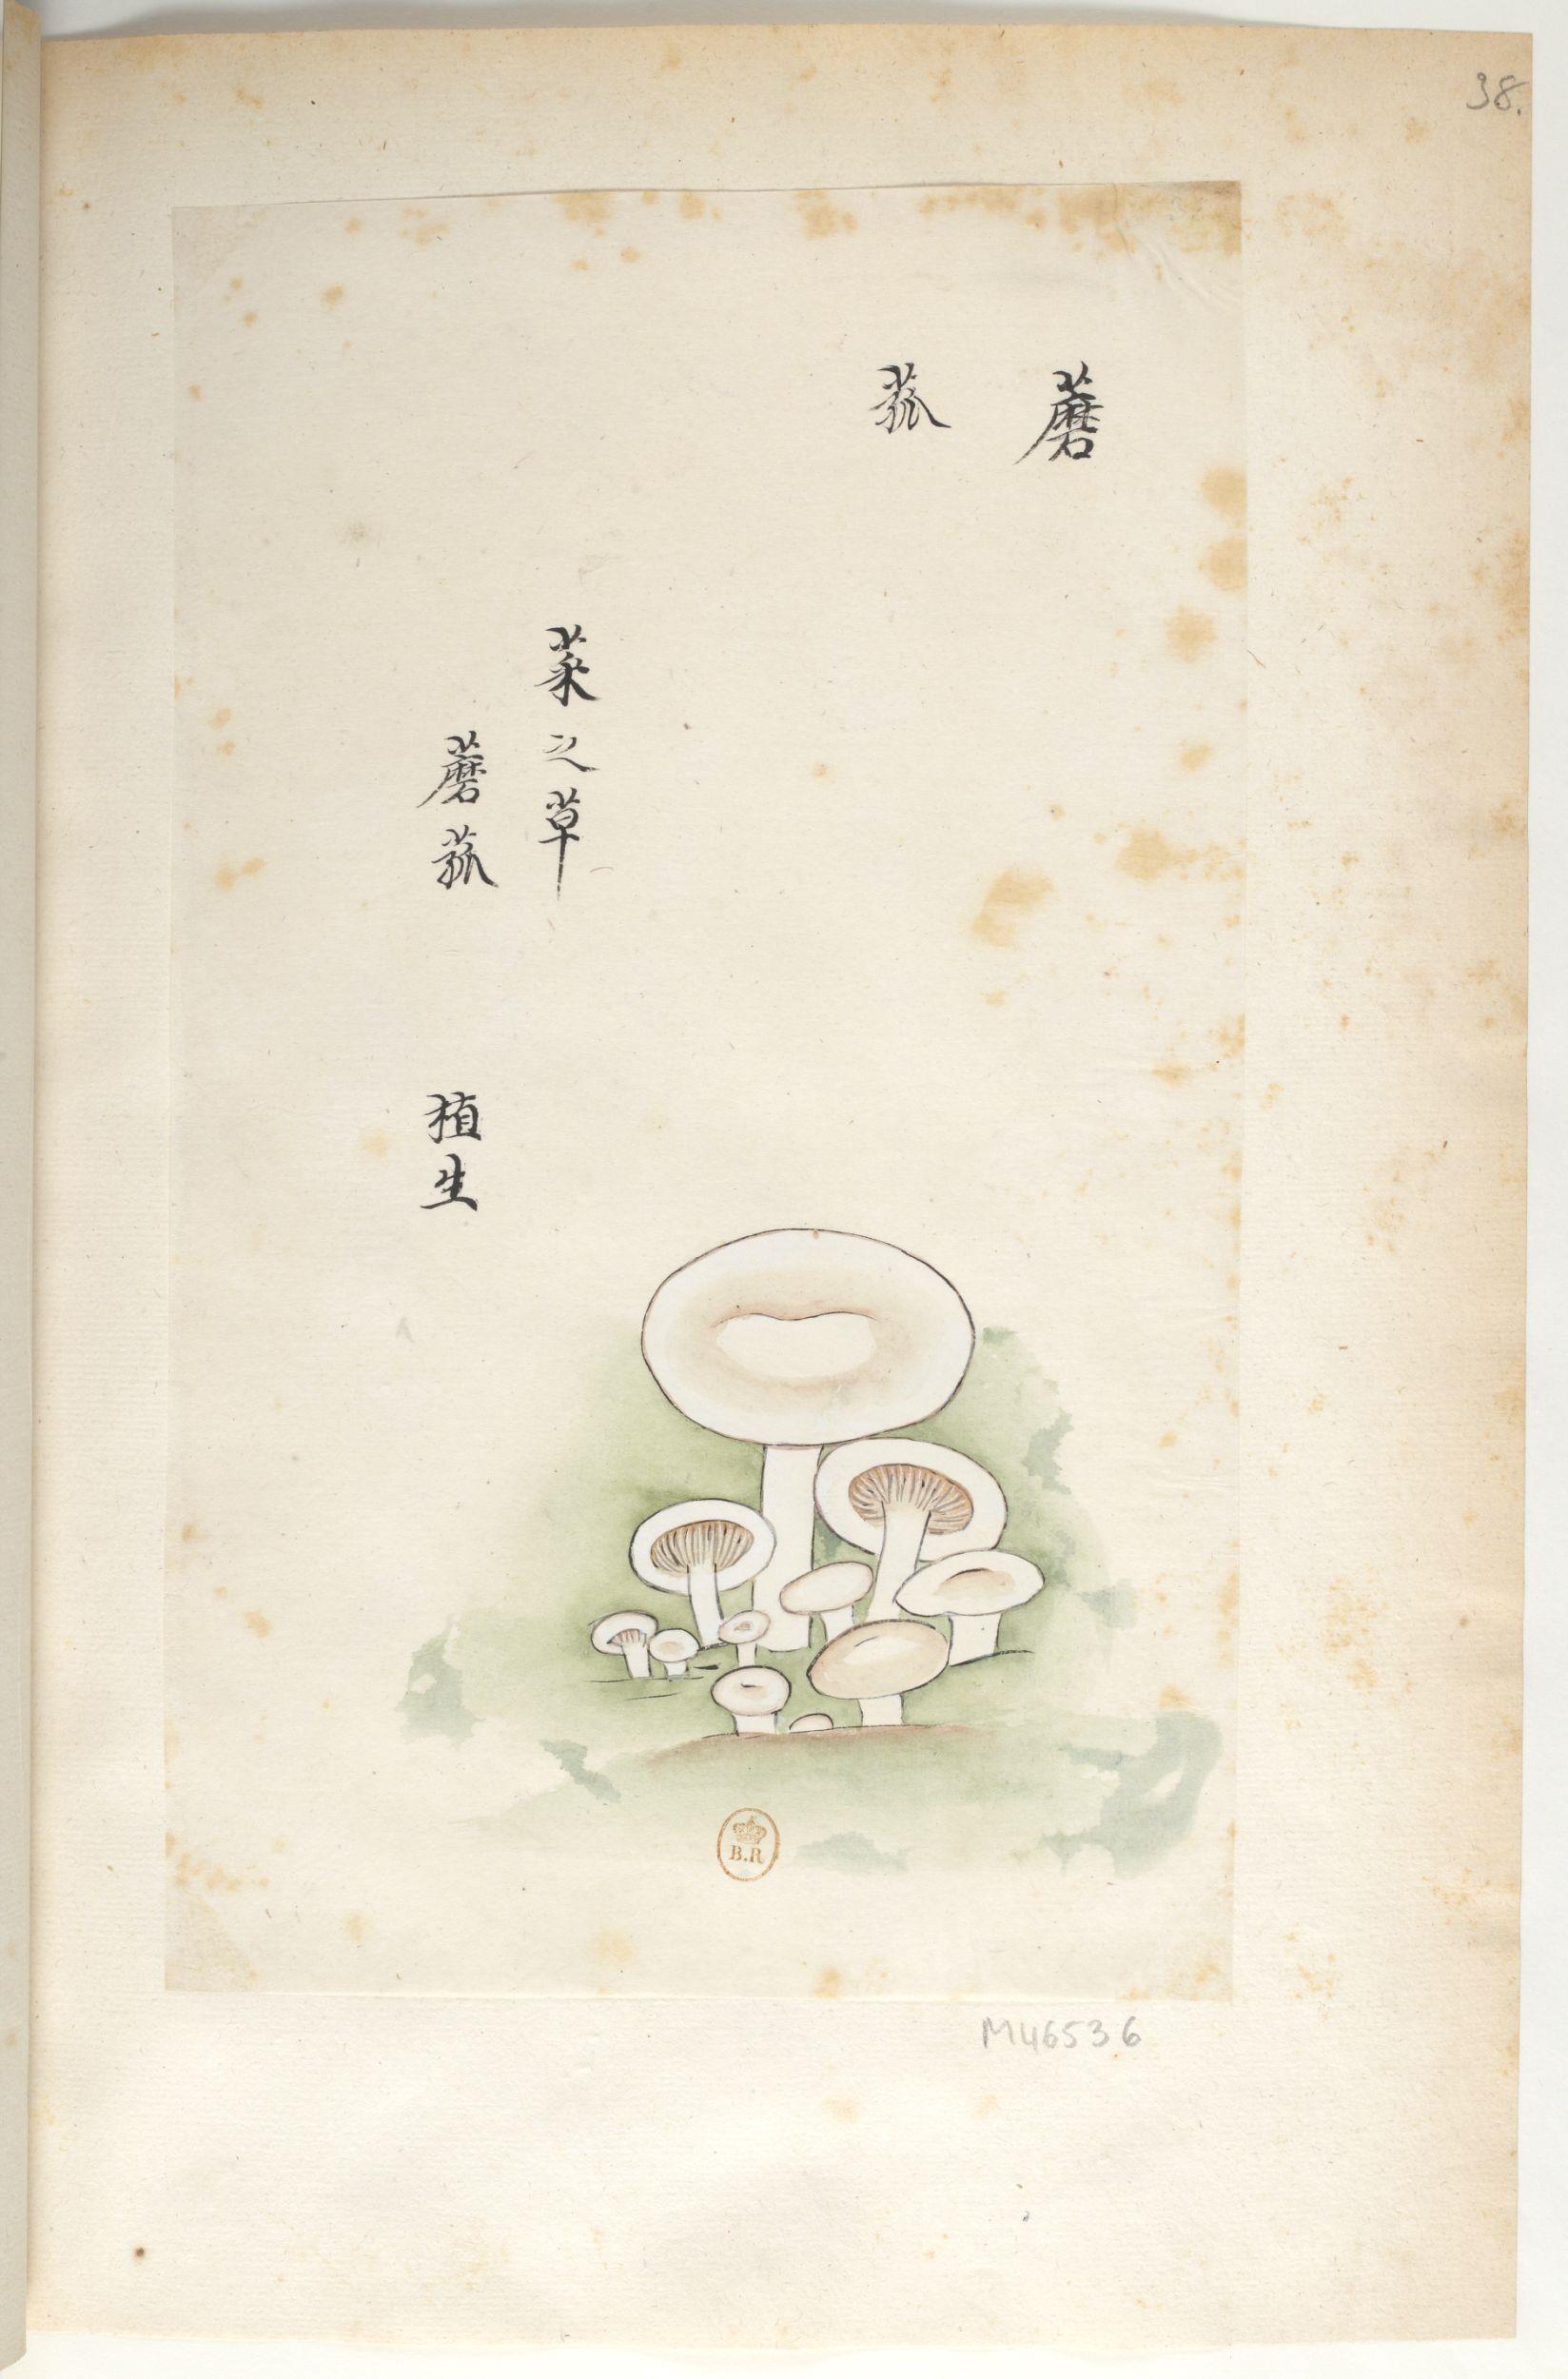 38.
蘑
菰
菜之草
蘑菰
植生
B.R
M46536